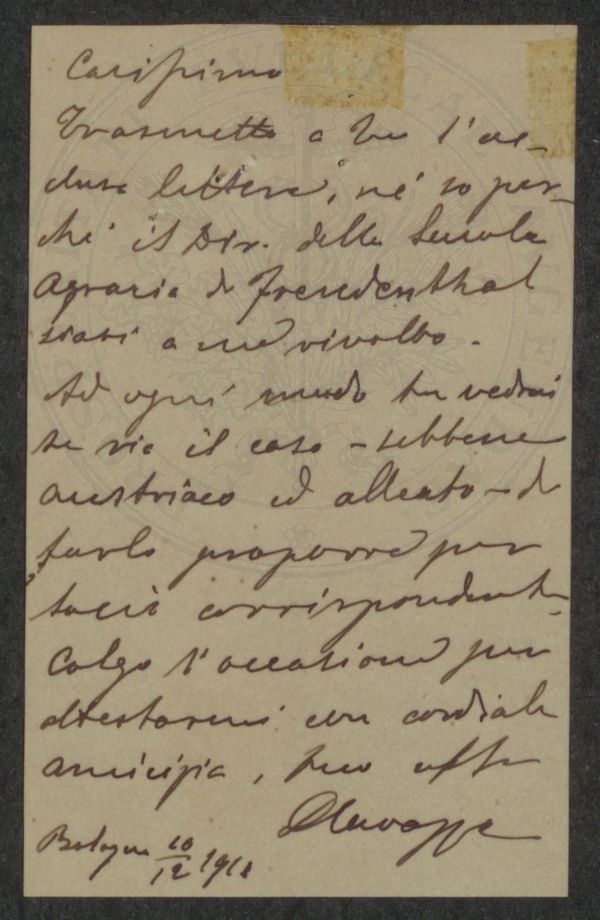 Carissimo
Trasmetto a Te l'ac-
clusa lettera, né so per-
ché il Dir. della Scuola
Agraria di Freudenthal
siasi a me rivolto.
Ad ogni modo tu vedrai
se sia il caso - sebbene
austriaco ed alleato - di
farlo proporre per
socio corrispondente.
Colgo l'occasione per
attestarmi con cordiale
amicizia, tuo aff.
Bologna 10/12 191